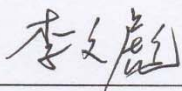 李文彪